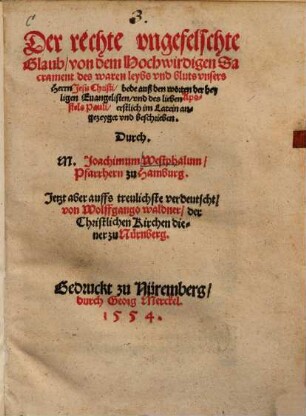 3.
Der rechte vngefelschte
Glaub/ von dem Hochwirdigen Sa
crament des waren leybs vnd bluts vnsers
Herrn Jesu Christi/ bede auß den worten der hey
ligen Euangelisten/ vnd des lieben Apo
stels Pauli/ erstlich im Latein an
gezeyget vnd beschrieben.
Durch.
M. Joachimum Westphalum/
Pfarrhern zu Hamburg.
Jetzt aber auffs treulichste verdeutscht/
von Wolffgango waldner/ der
Christlichen Kirchen die=
ner zu Nürnberg.
Gedruckt zu Nüremberg/
durch Georg Merckel.
1554.